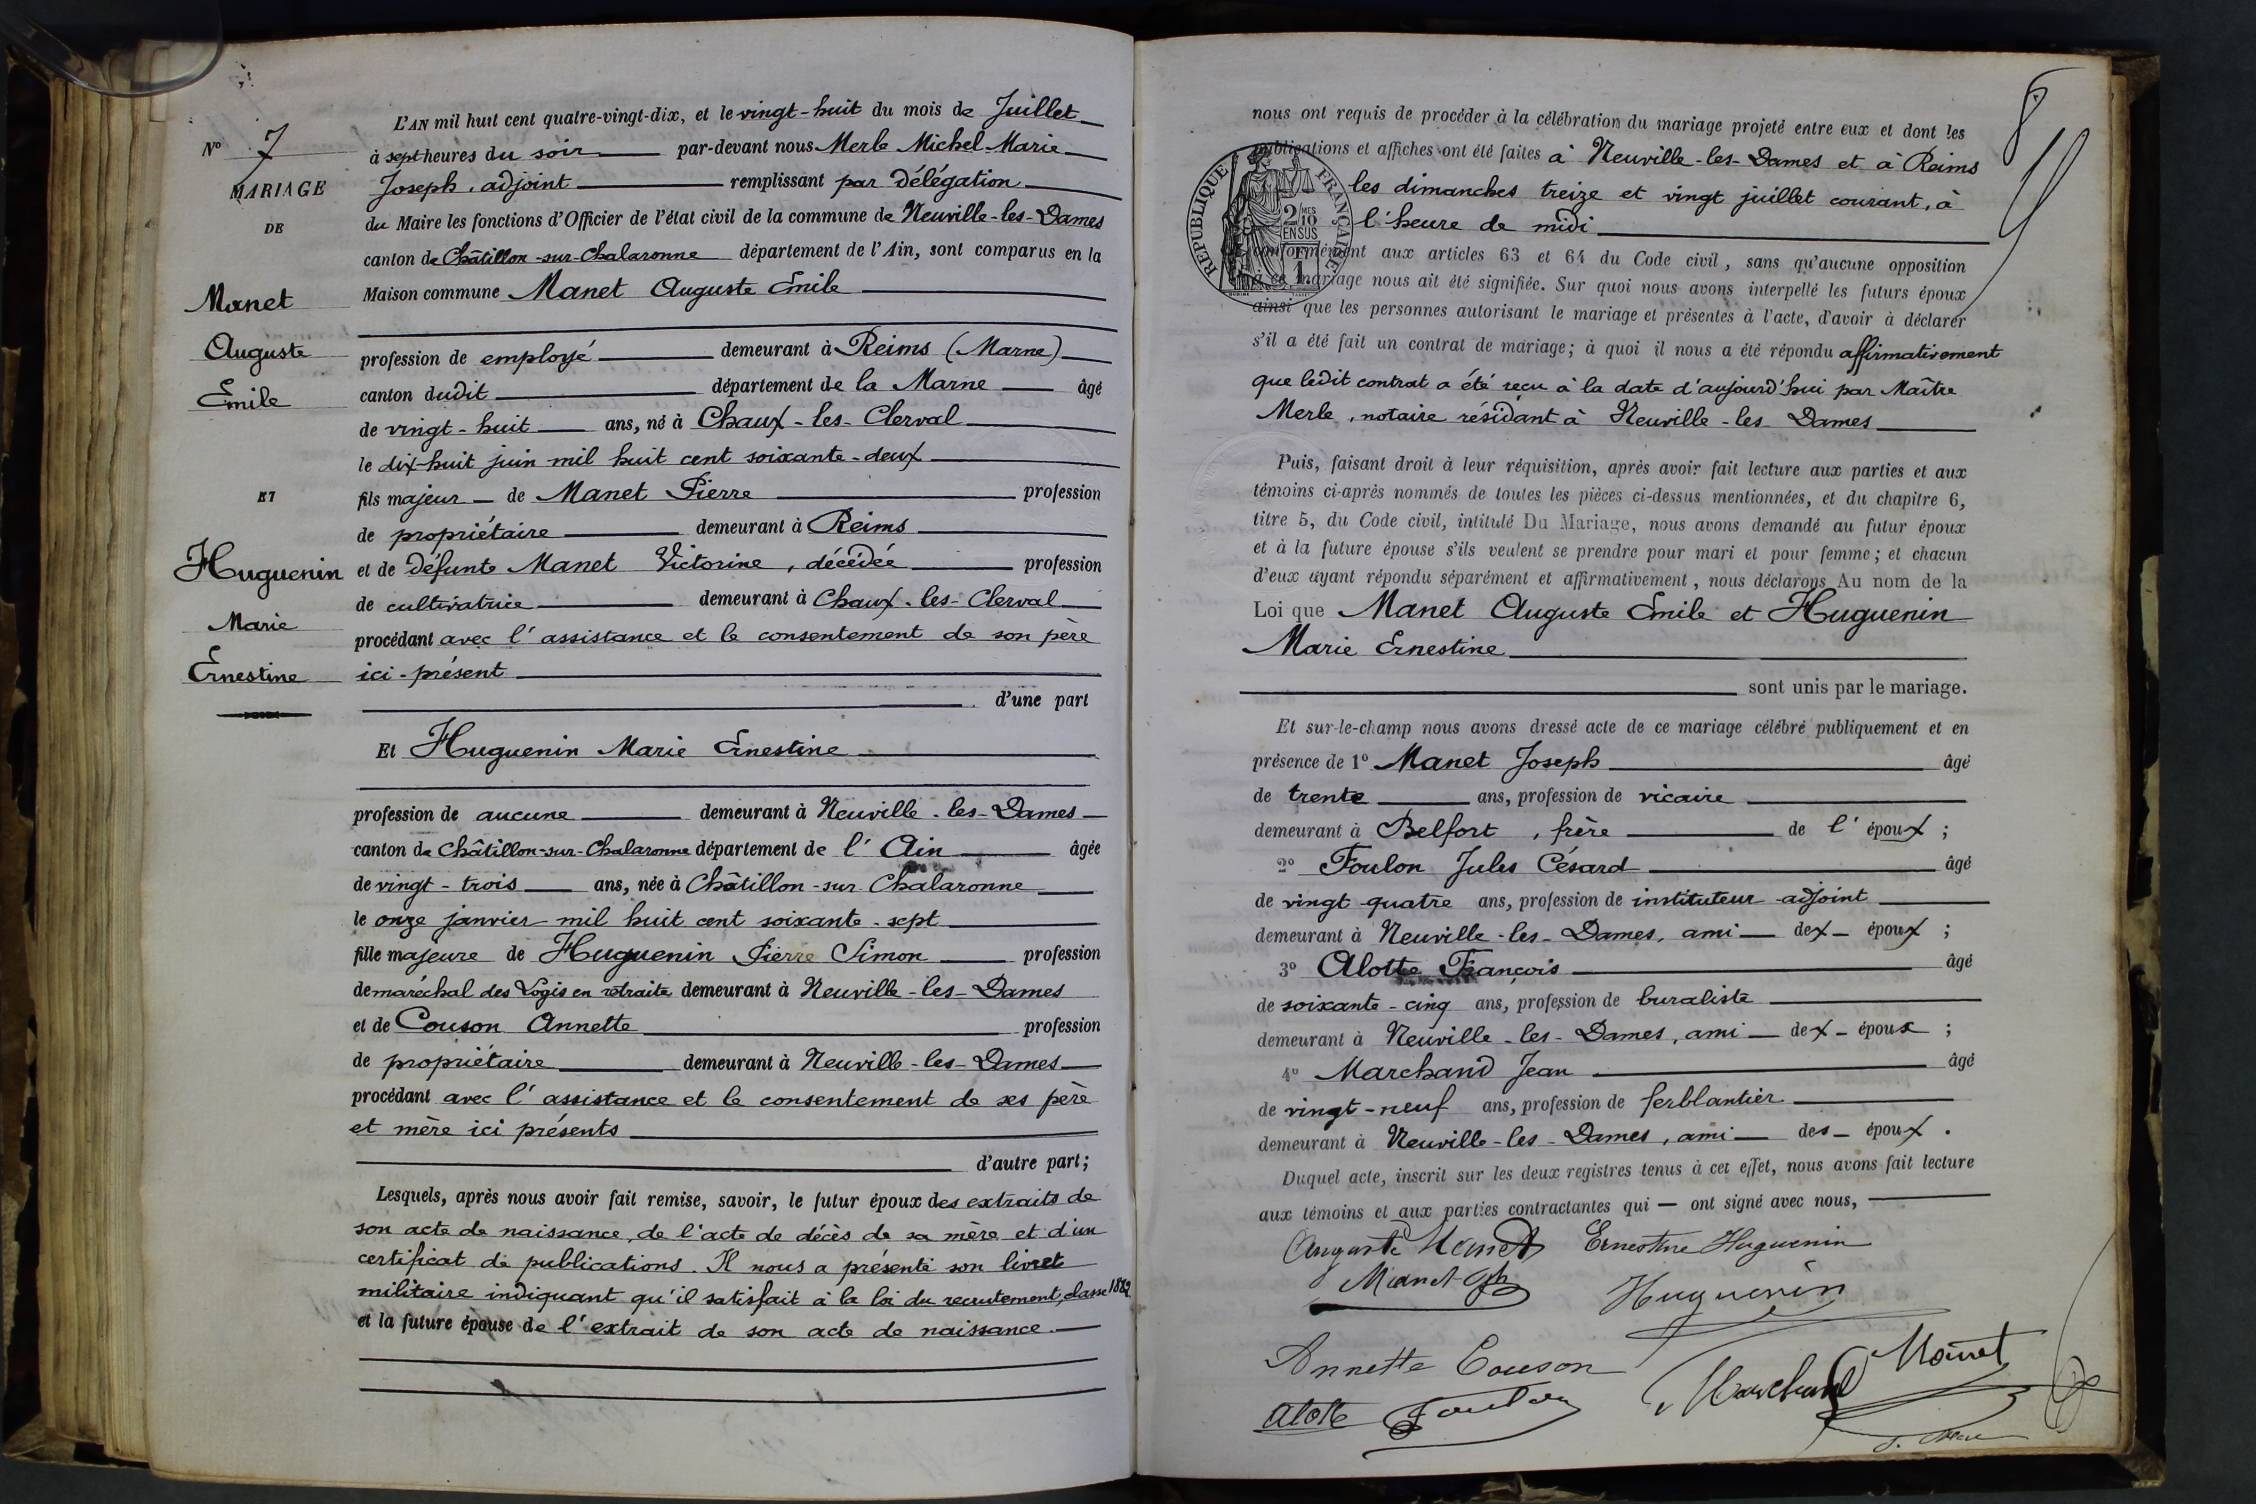 L'AN mil huit cent quatre-vingt-dix, et le vingt-huit du mois de Juillet
N° 7
à sept heures du soir par-devant nous Merle Michel Marie
MARIAGE
Joseph, adjoint remplissant par délégation
DE
du Maire les fonctions d'Officier de l'état civil de la commune de Neuville-les-Dames
canton de Châtillon-sur-Chalaronne département de l'Ain, sont comparus en la
Manet
Maison commune Manet Auguste Emile
Auguste
profession de employé demeurant à Reims (Marne)
Emile
canton dudit département de la Marne âgé
de vingt-huit ans, né à Chaux-les-Clerval
le dix-huit juin mil huit cent soixante-deux
ET
fils majeur de Manet Pierre profession
de propriétaire demeurant à Reims
Huguenin
et de défunte Manet Victorine, décédée profession
de cultivatrice demeurant à Chaux-les-Clerval
Marie
procédant avec l'assistance et le consentement de son père
Ernestine
ici-présent
d'une part
Et Huguenin Marie Ernestine
profession de aucune demeurant à Neuville-les-Dames
canton de Châtillon-sur-Chalaronne département de l'Ain âgée
de vingt-trois ans, née à Châtillon-sur-Chalaronne
le onze janvier mil huit cent soixante-sept
fille majeure de Huguenin Pierre Simon profession
de maréchal des Logis en retraite demeurant à Neuville-les-Dames
et de Couson Annette profession
de propriétaire demeurant à Neuville-les-Dames
procédant avec l'assistance et le consentement de ses père
et mère ici présents
d'autre part;
Lesquels, après nous avoir fait remise, savoir, le futur époux des extraits de
son acte de naissance, de l'acte de décès de sa mère et d'un
certificat de publications. Il nous a présenté son livret
militaire indiquant qu'il satisfait à la loi du recrutement, classe 1882
et la future épouse de l'extrait de son acte de naissance.
8
nous ont requis de procéder à la célébration du mariage projeté entre eux et dont les
publications et affiches ont été faites à Neuville-les-Dames et à Reims
les dimanches treize et vingt juillet courant, à
l'heure de midi
RÉPUBLIQUE FRANÇAISE
2/10 MES
EN SUS
1 F
conformément aux articles 63 et 64 du Code civil, sans qu'aucune opposition
à ce mariage nous ait été signifiée. Sur quoi nous avons interpellé les futurs époux
ainsi que les personnes autorisant le mariage et présentes à l'acte, d'avoir à déclarer
s'il a été fait un contrat de mariage; à quoi il nous a été répondu affirmativement
que ledit contrat a été reçu à la date d'aujourd'hui par Maître
Merle, notaire résidant à Neuville-les-Dames
Puis, faisant droit à leur réquisition, après avoir fait lecture aux parties et aux
témoins ci-après nommés de toutes les pièces ci-dessus mentionnées, et du chapitre 6,
titre 5, du Code civil, intitulé Du Mariage, nous avons demandé au futur époux
et à la future épouse s'ils veulent se prendre pour mari et pour femme; et chacun
d'eux ayant répondu séparément et affirmativement, nous déclarons Au nom de la
Loi que Manet Auguste Emile et Huguenin
Marie Ernestine
sont unis par le mariage.
Et sur-le-champ nous avons dressé acte de ce mariage célébré publiquement et en
présence de 1° Manet Joseph âgé
de trente ans, profession de vicaire
demeurant à Belfort, frère de l'époux;
2° Foulon Jules Césard âgé
de vingt-quatre ans, profession de instituteur adjoint
demeurant à Neuville-les-Dames, ami dex époux;
3° Alotte François âgé
de soixante-cinq ans, profession de buraliste
demeurant à Neuville-les-Dames, ami dex époux;
4° Marchand Jean âgé
de vingt-neuf ans, profession de ferblantier
demeurant à Neuville-les-Dames, ami des époux.
Duquel acte, inscrit sur les deux registres tenus à cet effet, nous avons fait lecture
aux témoins et aux parties contractantes qui ont signé avec nous,
Auguste Manet Ernestine Huguenin
Manet Jph Huguenin
Annette Couson
Marchand Manet
Alotte Foulon